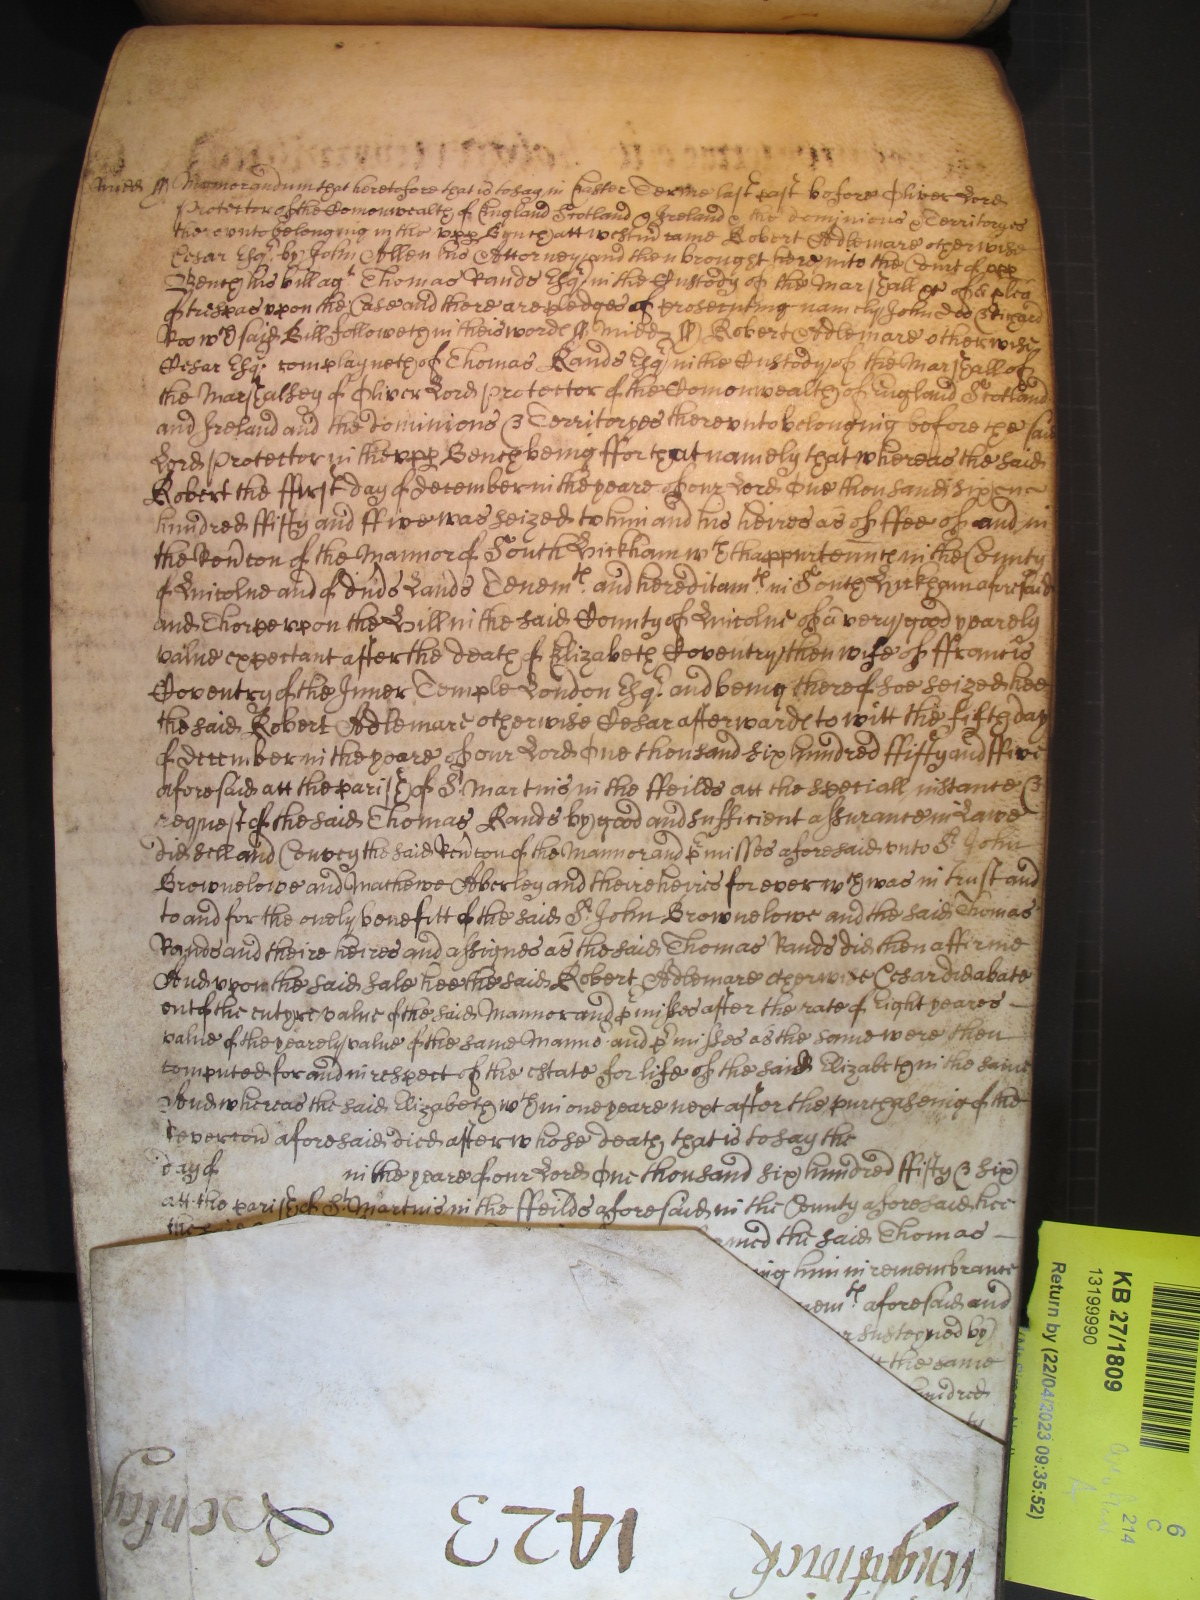 Midd ss Memorandum that heretofore that is to say in Easter Terme last past before Oliver Lord
Protector of the Comonwealth of England Scotland & Ireland & the dominions & Territoryes
thereunto belonging in the upp Bench att Westm came Robert Adlemare otherwise
Cesar Esqr by John Allen his Attorney and then brought here into the Court of upp
Bench his bill agt Thomas Rands Esqr in the Custody of the Marshall &c of a plea
of trespas upon the Case and there are pledges of prosecuting namely John Doo & Richard
Roo wch said Bill followeth in theis words ss Midd ss Robert Adlemare otherwise
Cesar Esqr complayneth of Thomas Rands Esqr in the Custody of the Marshall of
the Marshalsey of Oliver Lord Protector of the Comonwealth of England Scotland
and Ireland and the dominions & Territoryes thereunto belonging before the said
Lord Protector in the upp Bench being ffor that namely that whereas the said
Robert the ffirst day of december in the yeare of our Lord One thousand six
hundred ffifty and ffive was seized to him and his heires as of ffee of and in
the Revercon of the Mannor of South Kickham wth thappurtennces in the County
of Lincolne and of Lands Tenemts and hereditamts in South aforesaid
and Thorpe upon the Hill in the said County of Lincolne of a very good yearely
value expectant after the death of Elizabeth Coventry then wife of ffrancis
Coventry of the Inner Temple London Esqr and being thereof soe seized hee
the said Robert Adlemare otherwise Cesar afterwards to witt the fifth day
of december in the yeare of our Lord One thousand six hundred ffifty and ffive
aforesaid att the parish of St Martins in the ffeilds att the speciall instance &
request of the said Thomas Rands by good and sufficient assurance in Lawe
did sell and Convey the said Revercon of the Mannor and pmisses aforesaid unto Sr John
Brownelowe and Mathewe Aberley and theire heires for ever wch was in trust and
to and for the onely benefitt of the said Sr John Brownelowe and the said Thomas
Rands and theire heires and assignes as the said Thomas Rands did then affirme
And upon the said sale hee the said Robert Adlemare otherwise Cesar did abate
out of the entyre value of the said Mannor and pmisses after the rate of Eight yeares
value of the yearely value of the same Manno and pmisses as the same were then
computed for and in respect of the estate for life of the said Elizabeth in the same
And whereas the said Elizabeth wthin one yeare next after the purchaseing of the
revercon aforesaid died after whose death that is to say the
day of in the yeare of our Lord One thousand six hundred ffifty & six
att the parish of St Martins in the ffeilds aforesaid in the County aforesaid hee
the said the said Thomas
him in remembrance
aforesaid and
susteyned by
the same
hundred
1423
KB 27/1809
13199990
Return by (22/04/2023 09:35:52)
6
C
214